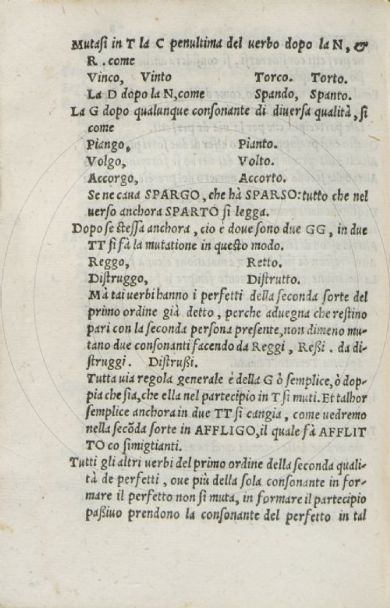 Mutasi in T la C penultima del verbo dopo la N, &
R. come
Vinco, Vinto Torco. Torto.
La D dopo la N, come Spando, Spanto.
La G dopo qualunque consonante di diversa qualità, si
come
Piango, Pianto.
Volgo, Volto.
Accorgo, Accorto.
Se ne caua SPARGO, che hà SPARSO: tutto che nel
uerso anchora SPARTO si legga.
Dopo se stessa anchora, cio è doue sono due GG, in due
TT si fà la mutatione in questo modo.
Reggo, Retto.
Distruggo, Distrutto.
Mà tai uerbi hanno i perfetti della seconda sorte del
primo ordine già detto, perche aduegna che restino
pari con la seconda persona presente, non dimeno mu-
tano due consonanti facendo da Reggi, Reßi. da di-
struggi. Distrußi.
Tutta uia regola generale è della G ò semplice, ò dop-
pia che sia, che ella nel partecipio in T si muti. Et talhor
semplice anchora in due TT si cangia, come uedremo
nella secōda sorte in AFFLIGO, il quale fà AFFLIT
TO co simigtianti.
Tutti gli altri uerbi del primo ordine della seconda quali-
tà de perfetti, oue più della sola consonante in for-
mare il perfetto non si muta, in formare il partecipio
paßiuo prendono la consonante del perfetto in tal